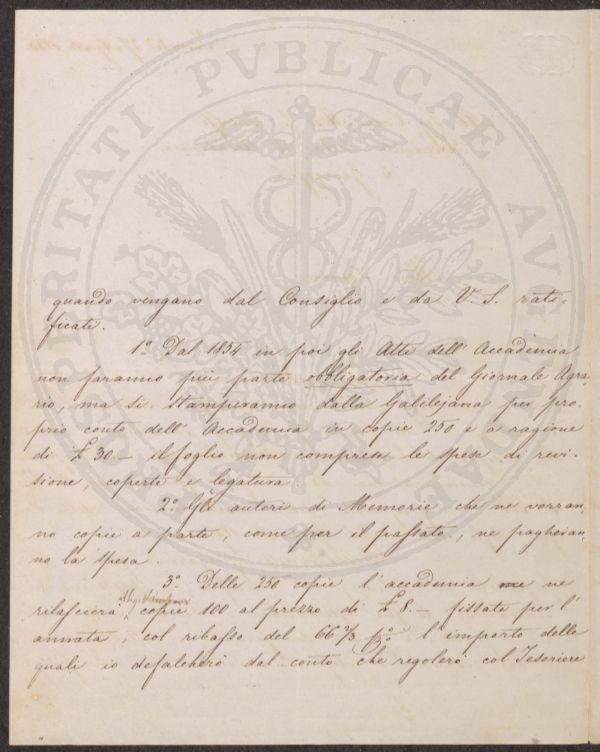 PROSPERITATI PVBLICAE AVGENDAE
quando vengano dal Consiglio e da V. S. rati=
ficate.
1º Dal 1854 in poi gli Atti dell'Accademia
non faranno più parte obbligatoria del Giornale Agra=
rio, ma si stamperanno dalla Galilejana per pro=
prio conto dell'Accademia in copie 250 e a ragione
di £ 30.— il foglio non comprese le spese di revi=
sione, coperte e legatura.
2º Gli autori di Memorie che ne vorran=
no copie a parte, come per il passato, ne pagheran=
no la spesa.
3º Delle 250 copie l'accademia ne
rilascierà copie 100 al prezzo di £ 8.— fissate per l'
annata, col ribasso del 66 2/3 p%, l'importo delle
quali io defalcherò dal conto che regolerò col Tesoriere